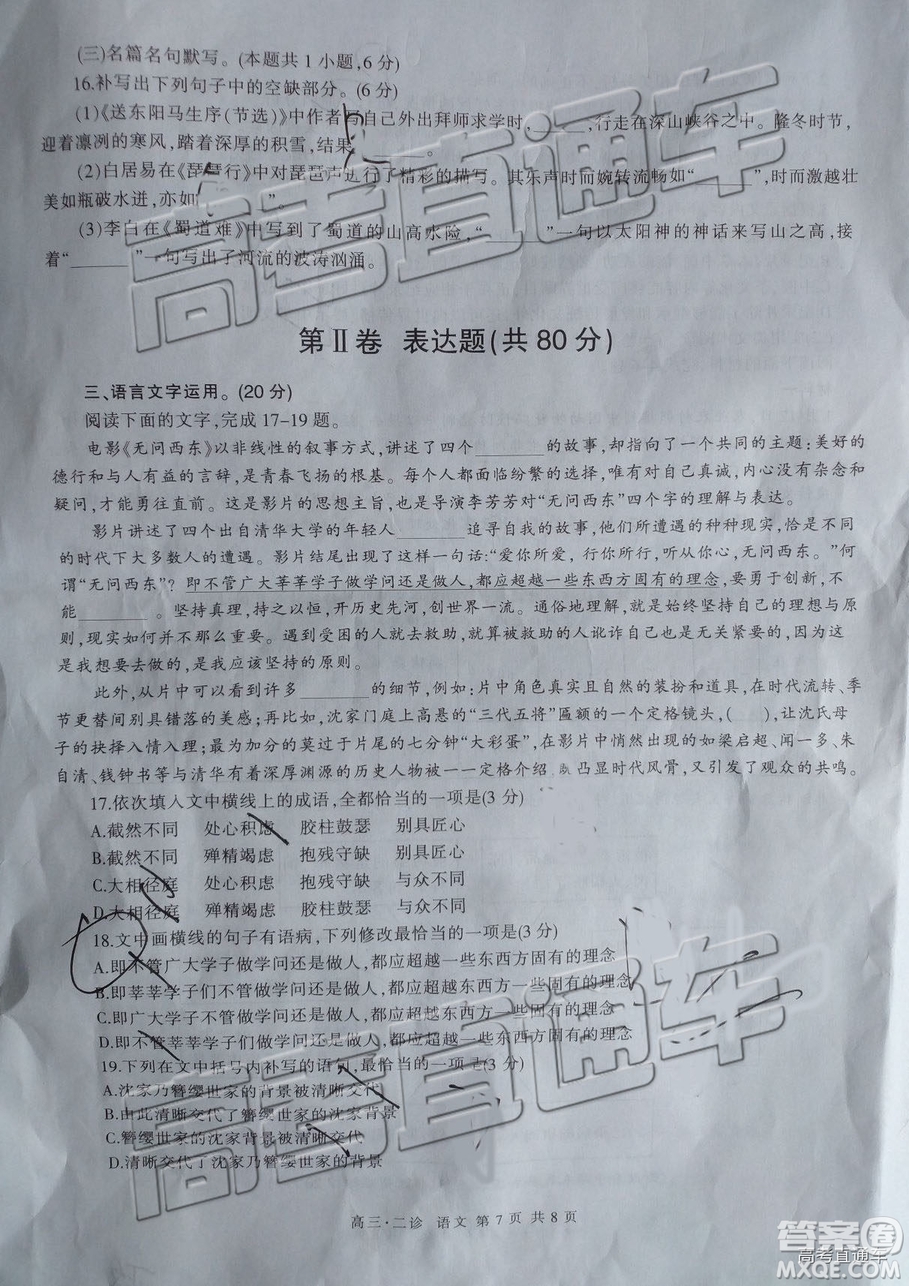 (三)名篇名句默写。(本题共1小题,6分)
16.补写出下列句子中的空缺部分。(6分)
(1)《送东阳马生序(节选)》中作者写自己外出拜师求学时,______,行走在深山峡谷之中。隆冬时节,
迎着凛冽的寒风,踏着深厚的积雪,结果______。
(2)白居易在《琵琶行》中对琵琶声进行了精彩的描写。其乐声时而婉转流畅如“______”,时而激越壮
美如瓶破水迸,亦如“______”。
(3)李白在《蜀道难》中写到了蜀道的山高水险,“______”一句以太阳神的神话来写山之高,接
着“______”一句写出了河流的波涛汹涌。
第Ⅱ卷 表达题(共80分)
三、语言文字运用。(20分)
阅读下面的文字,完成17-19题。
电影《无问西东》以非线性的叙事方式,讲述了四个______的故事,却指向了一个共同的主题:美好的
德行和与人有益的言辞,是青春飞扬的根基。每个人都面临纷繁的选择,唯有对自己真诚,内心没有杂念和
疑问,才能勇往直前。这是影片的思想主旨,也是导演李芳芳对“无问西东”四个字的理解与表达。
影片讲述了四个出自清华大学的年轻人______追寻自我的故事,他们所遭遇的种种现实,恰是不同
的时代下大多数人的遭遇。影片结尾出现了这样一句话:“爱你所爱,行你所行,听从你心,无问西东。”何
谓“无问西东”?即不管广大莘莘学子做学问还是做人,都应超越一些东西方固有的理念,要勇于创新,不
能______。坚持真理,持之以恒,开历史先河,创世界一流。通俗地理解,就是始终坚持自己的理想与原
则,现实如何并不那么重要。遇到受困的人就去救助,就算被救助的人讹诈自己也是无关紧要的,因为这
是我想要去做的,是我应该坚持的原则。
此外,从片中可以看到许多______的细节,例如:片中角色真实且自然的装扮和道具,在时代流转、季
节更替间别具错落的美感;再比如,沈家门庭上高悬的“三代五将”匾额的一个定格镜头,( ),让沈氏母
子的抉择入情入理;最为加分的莫过于片尾的七分钟“大彩蛋”,在影片中悄然出现的如梁启超、闻一多、朱
自清、钱钟书等与清华有着深厚渊源的历史人物被一一定格介绍,既凸显时代风骨,又引发了观众的共鸣。
17.依次填入文中横线上的成语,全都恰当的一项是(3分)
A.截然不同 处心积虑 胶柱鼓瑟 别具匠心
B.截然不同 殚精竭虑 抱残守缺 别具匠心
C.大相径庭 处心积虑 抱残守缺 与众不同
D.大相径庭 殚精竭虑 胶柱鼓瑟 与众不同
18.文中画横线的句子有语病,下列修改最恰当的一项是(3分)
A.即不管广大学子做学问还是做人,都应超越一些东西方固有的理念
B.即莘莘学子们不管做学问还是做人,都应超越一些东西方固有的理念
C.即广大学子不管做学问还是做人,都应超越东西方一些固有的理念
D.即不管莘莘学子们做学问还是做人,都应超越东西方固有的理念
19.下列在文中括号内补写的语句,最恰当的一项是(3分)
A.沈家乃簪缨世家的背景被清晰交代
B.由此清晰交代了簪缨世家的沈家背景
C.簪缨世家的沈家背景被清晰交代
D.清晰交代了沈家乃簪缨世家的背景
高三·二诊 语文 第7页 共8页
高考直通车
高考直通车
答案圈
高考直通车
MXQE.COM